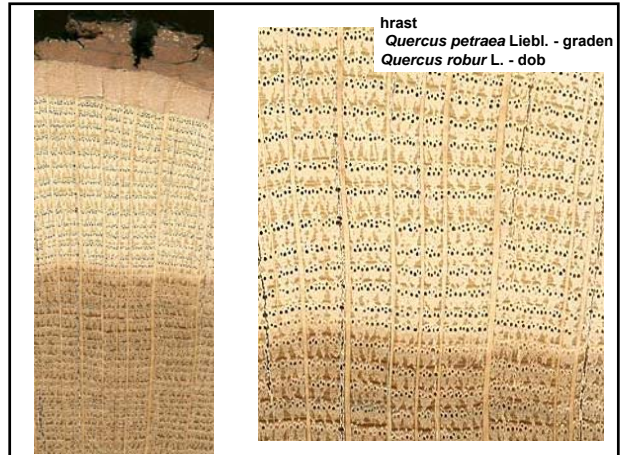 hrast
Quercus petraea Liebl. - graden
Quercus robur L. - dob